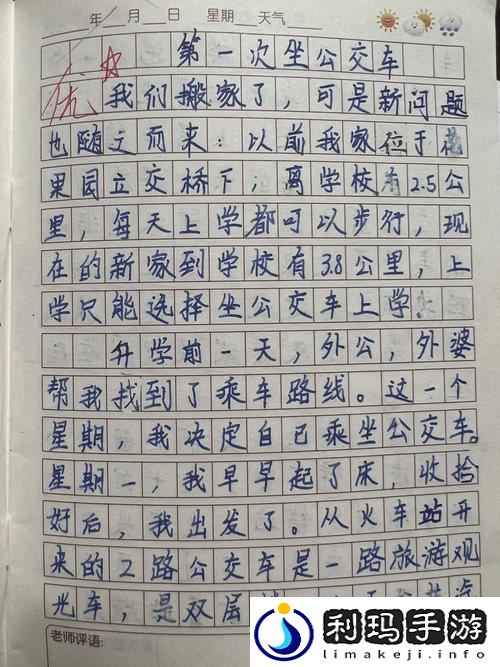 年 月 日 星期 天气
第一次坐公交车
优
我们搬家了,可是新问题
也随之而来:以前我家位于花
果园立交桥下,离学校有2.5公
里,每天上学都可以步行,现
在的新家到学校有3.8公里,上
学只能选择坐公交车上学.
升学前一天,外公,外婆
帮我找到了乘车路线。过一个
星期,我决定自己乘坐公交车。
星期一,我早早起了床,收拾
好后,我出发了。从火车站开
来的2路公交车是一路旅游观
光车,是双层
老师评语:
利玛手游
limakeji.infotv